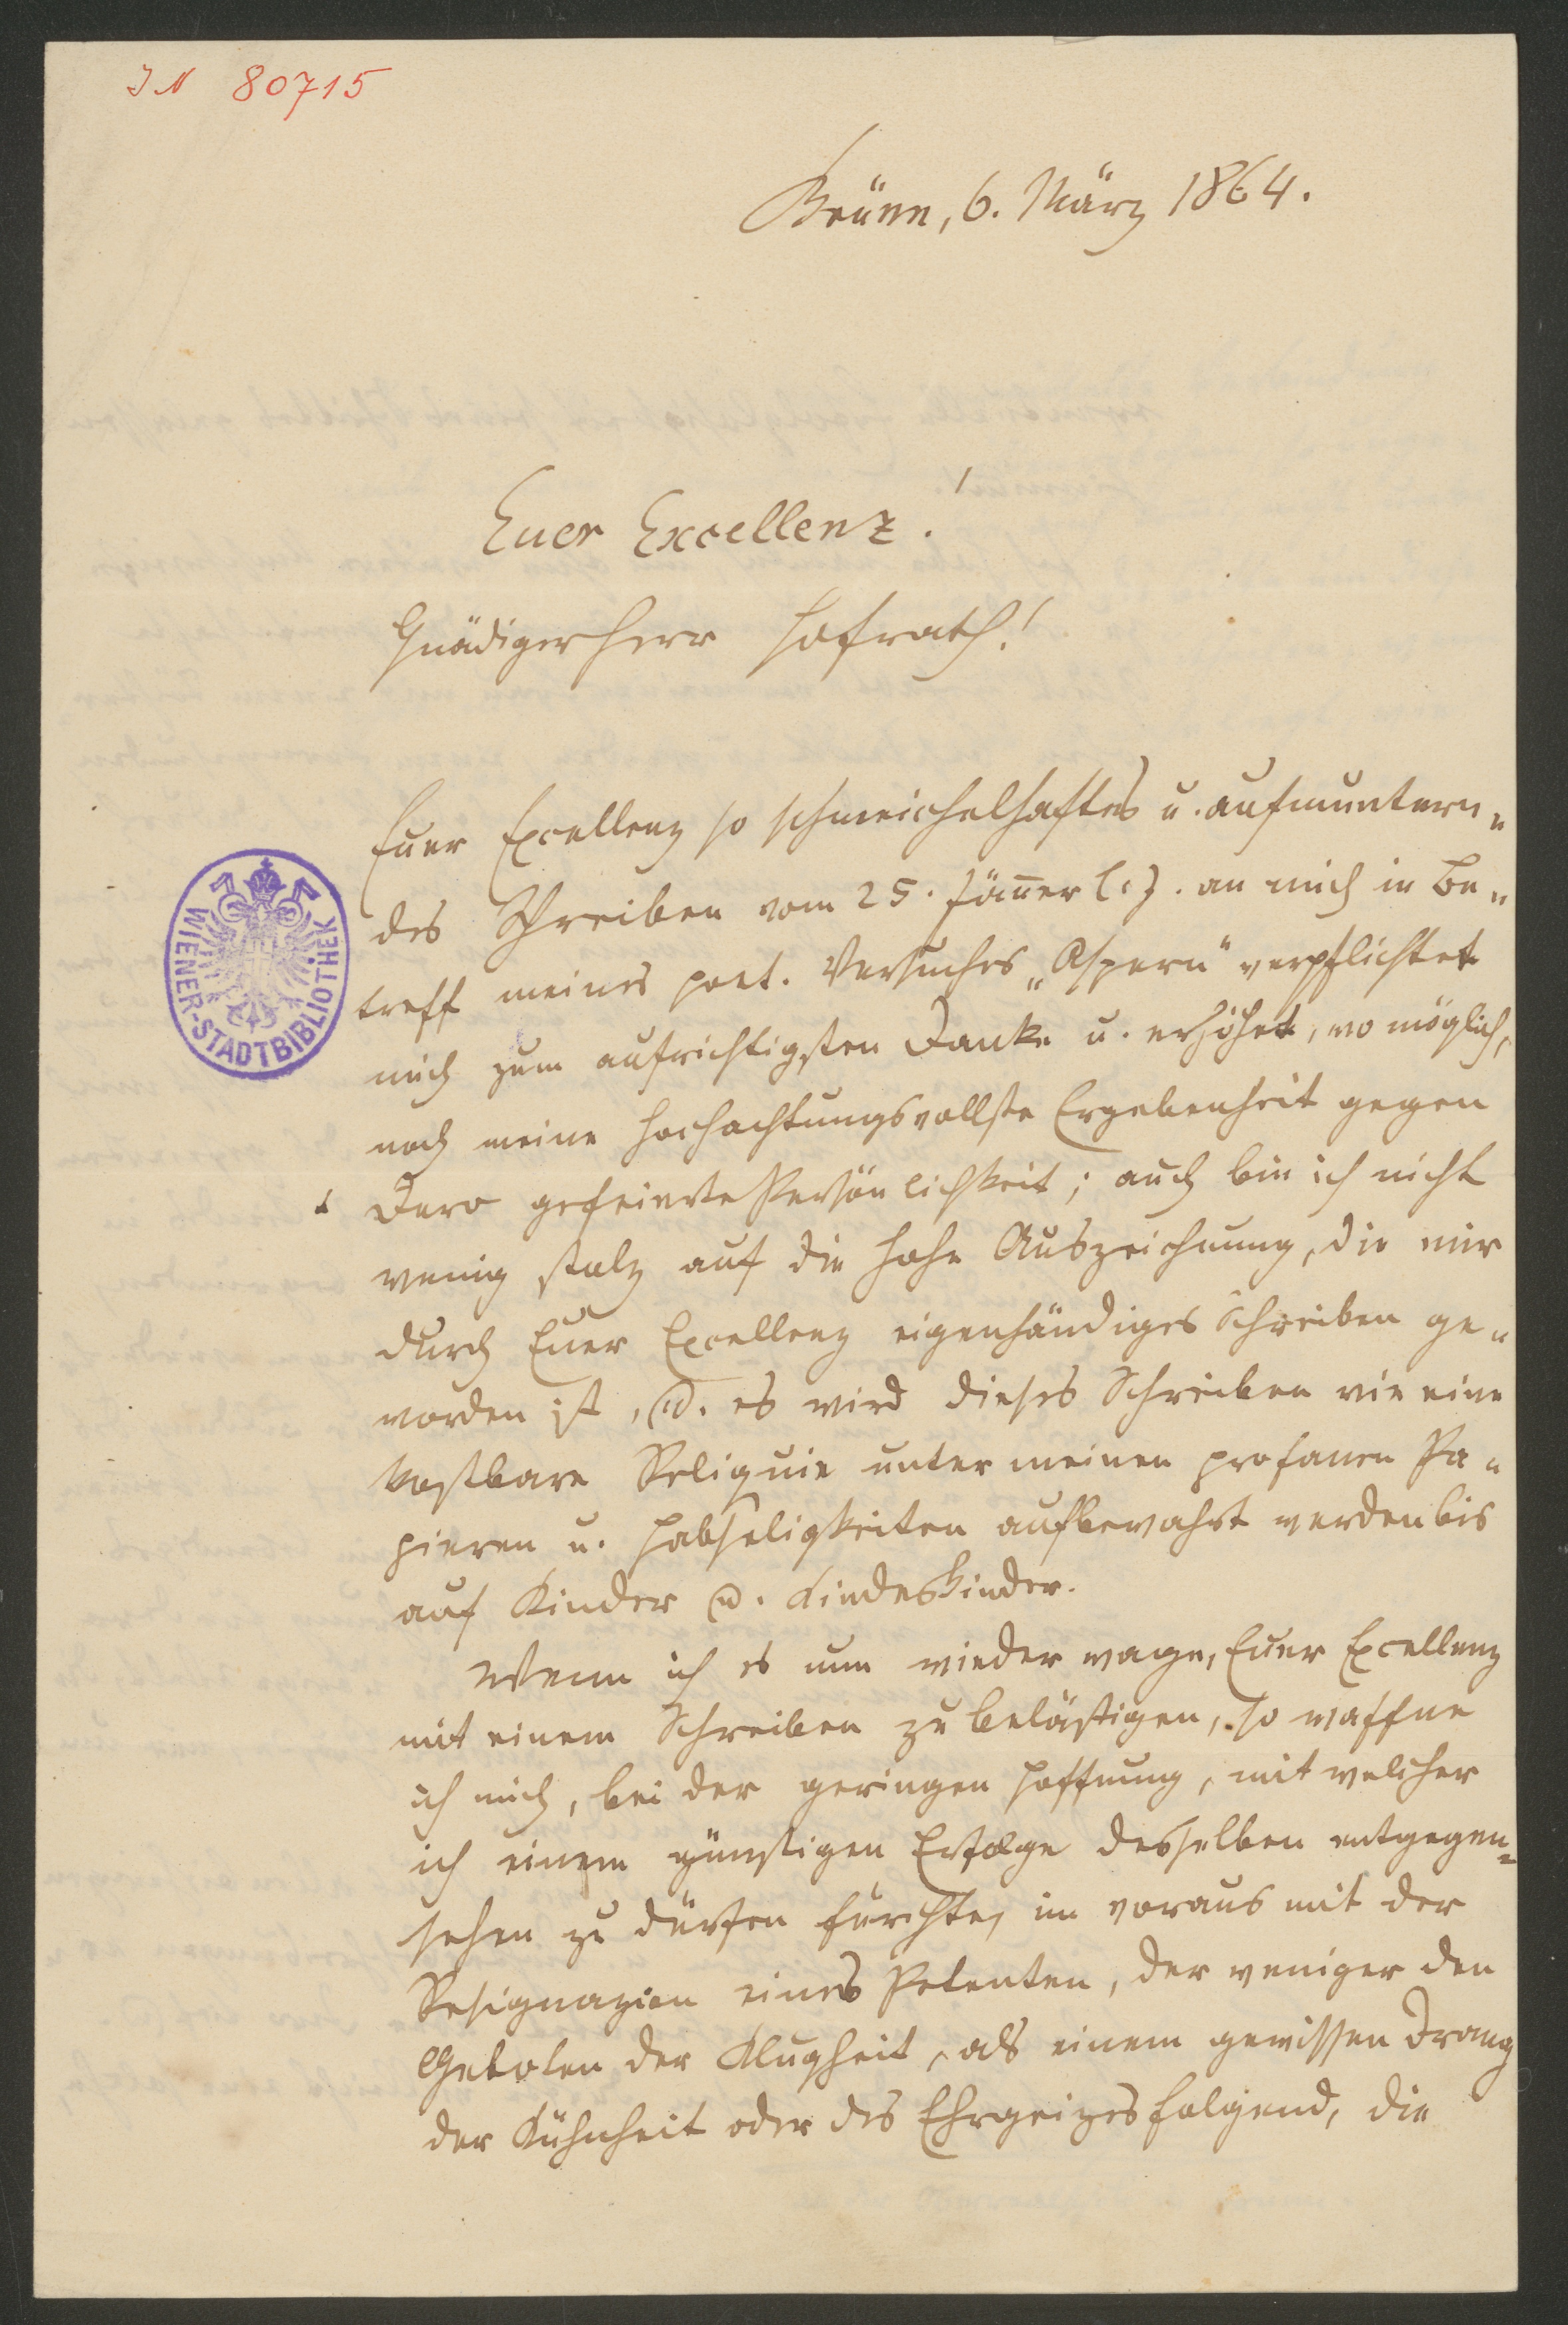 IN 80715
Brünn, 6. März 1864.
Euer Excellenz!
Gnädiger Herr Hofrath!
Euer Excellenz so schmeichelhaftes u. aufmuntern-
des Schreiben vom 25. Jäner l. J. an mich in Be-
treff meines poet. Versuches „Aspern" verpflichtet
mich zum aufrichtigsten Danke u. erhöhet, wo möglich,
noch meine hochachtungsvollste Ergebenheit gegen
Dero gefeierte Persönlichkeit; auch bin ich nicht
wenig stolz auf die hohe Auszeichnung, die mir
durch Euer Excellenz eigenhändiges Schreiben ge-
worden ist, u. es wird dieses Schreiben wie eine
kostbare Reliquie unter meinen profanen Pa-
pieren u. Habseligkeiten aufbewahrt werden bis
auf Kinder u. Kindeskinder.
Wenn ich es nun wieder wage, Euer Excellenz
mit einem Schreiben zu belästigen, so waffne
ich mich, bei der geringen Hoffnung, mit welcher
ich einem günstigen Erfolge desselben entgegen-
sehen zu dürfen fürchte, im voraus mit der
Resignazion eines Petenten, der weniger den
Geboten der Klugheit, als einem gewissen Drang
der Kühnheit oder des Ehrgeizes folgend, die
WIENER-STADTBIBLIOTHEK